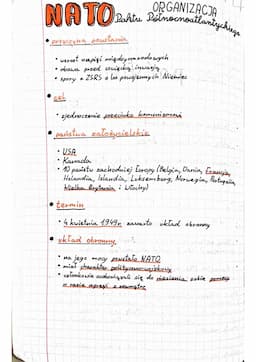 ORGANIZACJA
NATO Paktu Północnoatlantyckiego
• przyczyna powstania
• wzrost napięć międzynarodowych
• obawa przed sowiecką inwazją
• spory z ZSRS o los powojennych Niemiec
• cel
• zjednoczenie przeciwko komunizmowi
• państwa założycielskie
• USA
• Kanada
• 10 państw zachodniej Europy (Belgia, Dania, Francja,
Holandia, Islandia, Luksemburg, Norwegia, Portugalia,
Wielka Brytania i Włochy)
• termin
• 4 kwietnia 1949r. zawarto układ obronny
• układ obronny
• na jego mocy powstało NATO
• miał charakter polityczno-wojskowy
• członkowie zobowiązali się do niesienia sobie pomocy
w razie agresji z zewnątrz